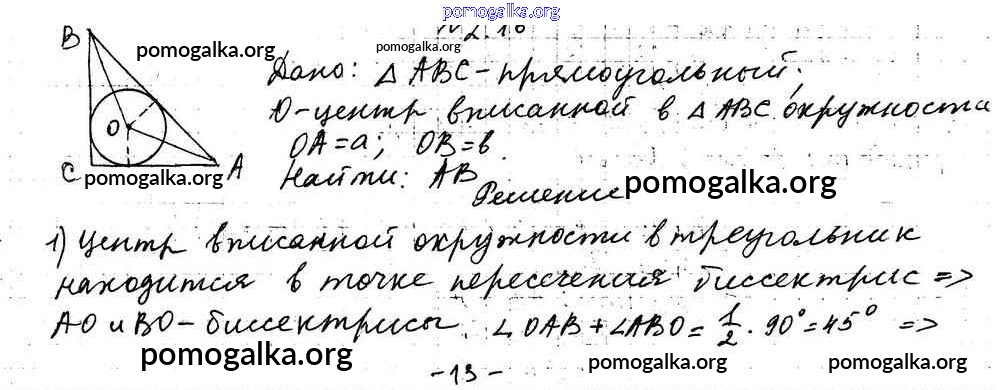 pomogalka.org
N 2.16
B
pomogalka.org
pomogalka.org
Дано: △ ABC - прямоугольный;
O - центр вписанной в △ ABC окружности
O
OA = a; OB = b
C
A
pomogalka.org
Найти: AB
pomogalka.org
Решение
1) Центр вписанной окружности в треугольник
находится в точке пересечения биссектрис =>
AO и BO - биссектрисы. ∠OAB + ∠ABO = 1/2 · 90° = 45° =>
pomogalka.org
- 13 -
pomogalka.org
pomogalka.org